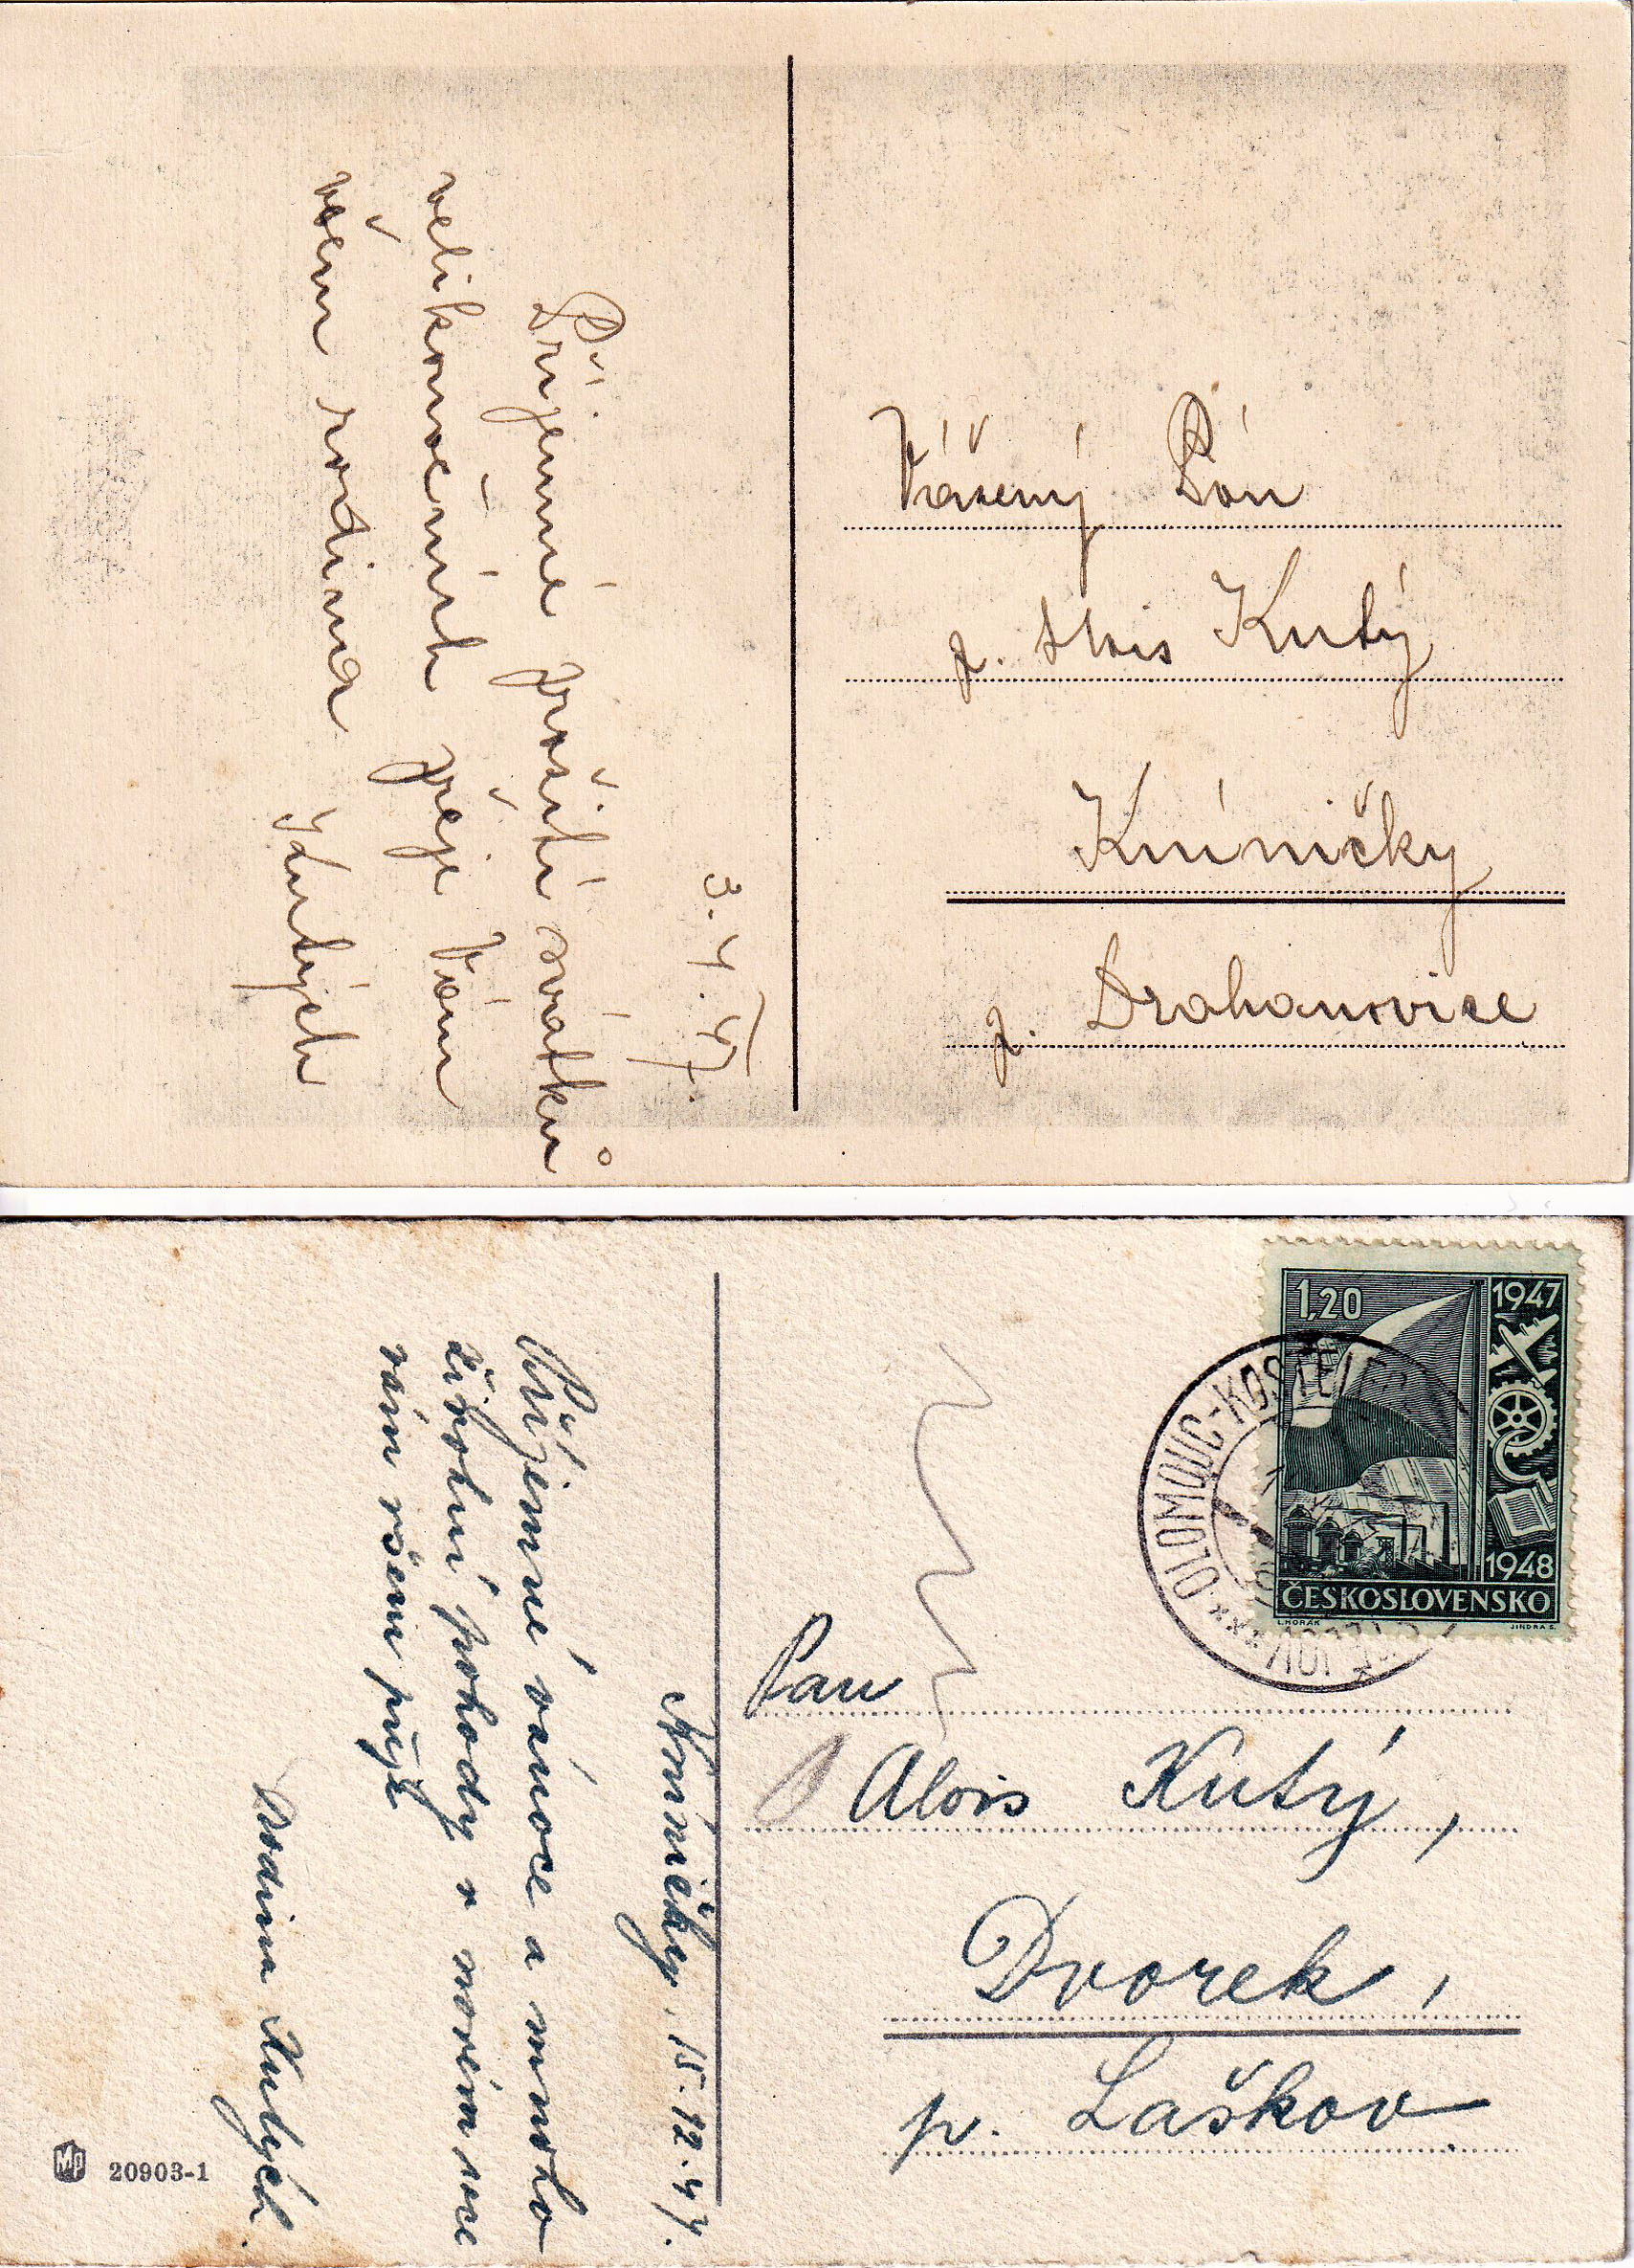 3. 4. 47.
Příjemné prožití svátků
velikonočních přeje Vám
všem rodina
Kutých
Vážený Pán
p. Alois Kutý
Kníničky
p. Drahanovice
Kníničky, 15.12.47.
Příjemné vánoce a mnoho
životní pohody v novém roce
vám všem přeje
Rodina Kutých.
MP 20903-1
1,20
1947
1948
ČESKOSLOVENSKO
L. HORÁK JINDRA S.
OLOMOUC-KOSTELEC
Pan
Alois Kutý,
Dvorek,
p. Laškov